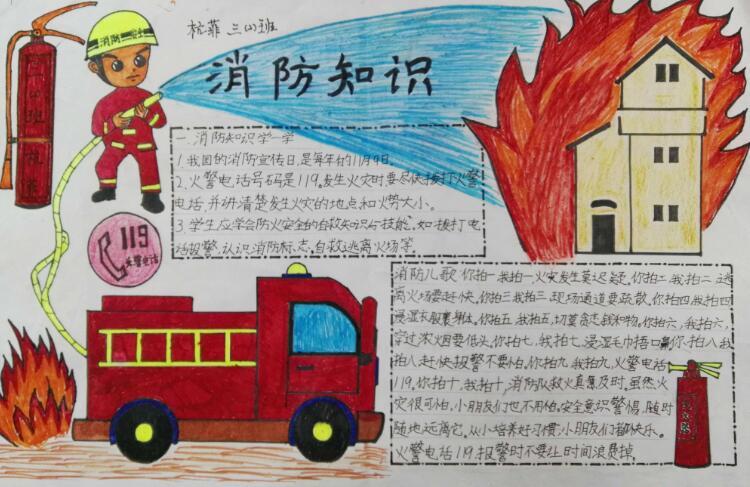 杭菲 三(4)班
消防知识
消防卫士
119
火警电话
一.消防知识学一学
1.我国的消防宣传日,是每年的11月9日.
2.火警电话号码是119。发生火灾时要尽快拨打火警
电话,并讲清楚发生火灾的地点和火势大小。
3.学生应学会防火安全的自救知识与技能。如拨打电
话报警,认识消防标志。自救逃离火场等。
消防儿歌你拍一我拍一,火灾发生莫迟疑。你拍二我拍二逃
离火场要赶快。你拍三我拍三,现场通道要疏散。你拍四我拍四
浸湿衣服裹身体。你拍五,我拍五,切莫贪恋钱和物。你拍六,我拍六,
穿过浓烟要低头。你拍七,我拍七,浸湿毛巾捂口鼻你拍八我
拍八赶快报警不要怕。你拍九我拍九,火警电话
119。你拍十,我拍十,消防队救火真是及时。虽然火
灾很可怕,小朋友们也不用怕。安全意识警惕,随时
随地远离它。从小培养好习惯,小朋友们都快乐。
火警电话119,报警时不要让时间浪费掉